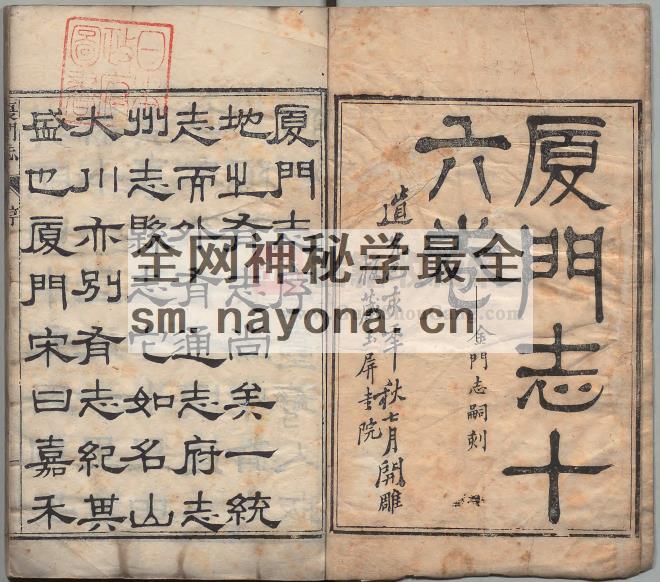 厦門志十
六卷
金門志嗣刻
道
年秋七月開雕
藏玉屏書院
厦門志序
地之有志尚矣一統
志而外有通志府志
州志縣志它如名山
大川亦別有志紀其
盛也厦門宋曰嘉禾
厦門志 序
全网神秘学最全
sm.nayona.cn